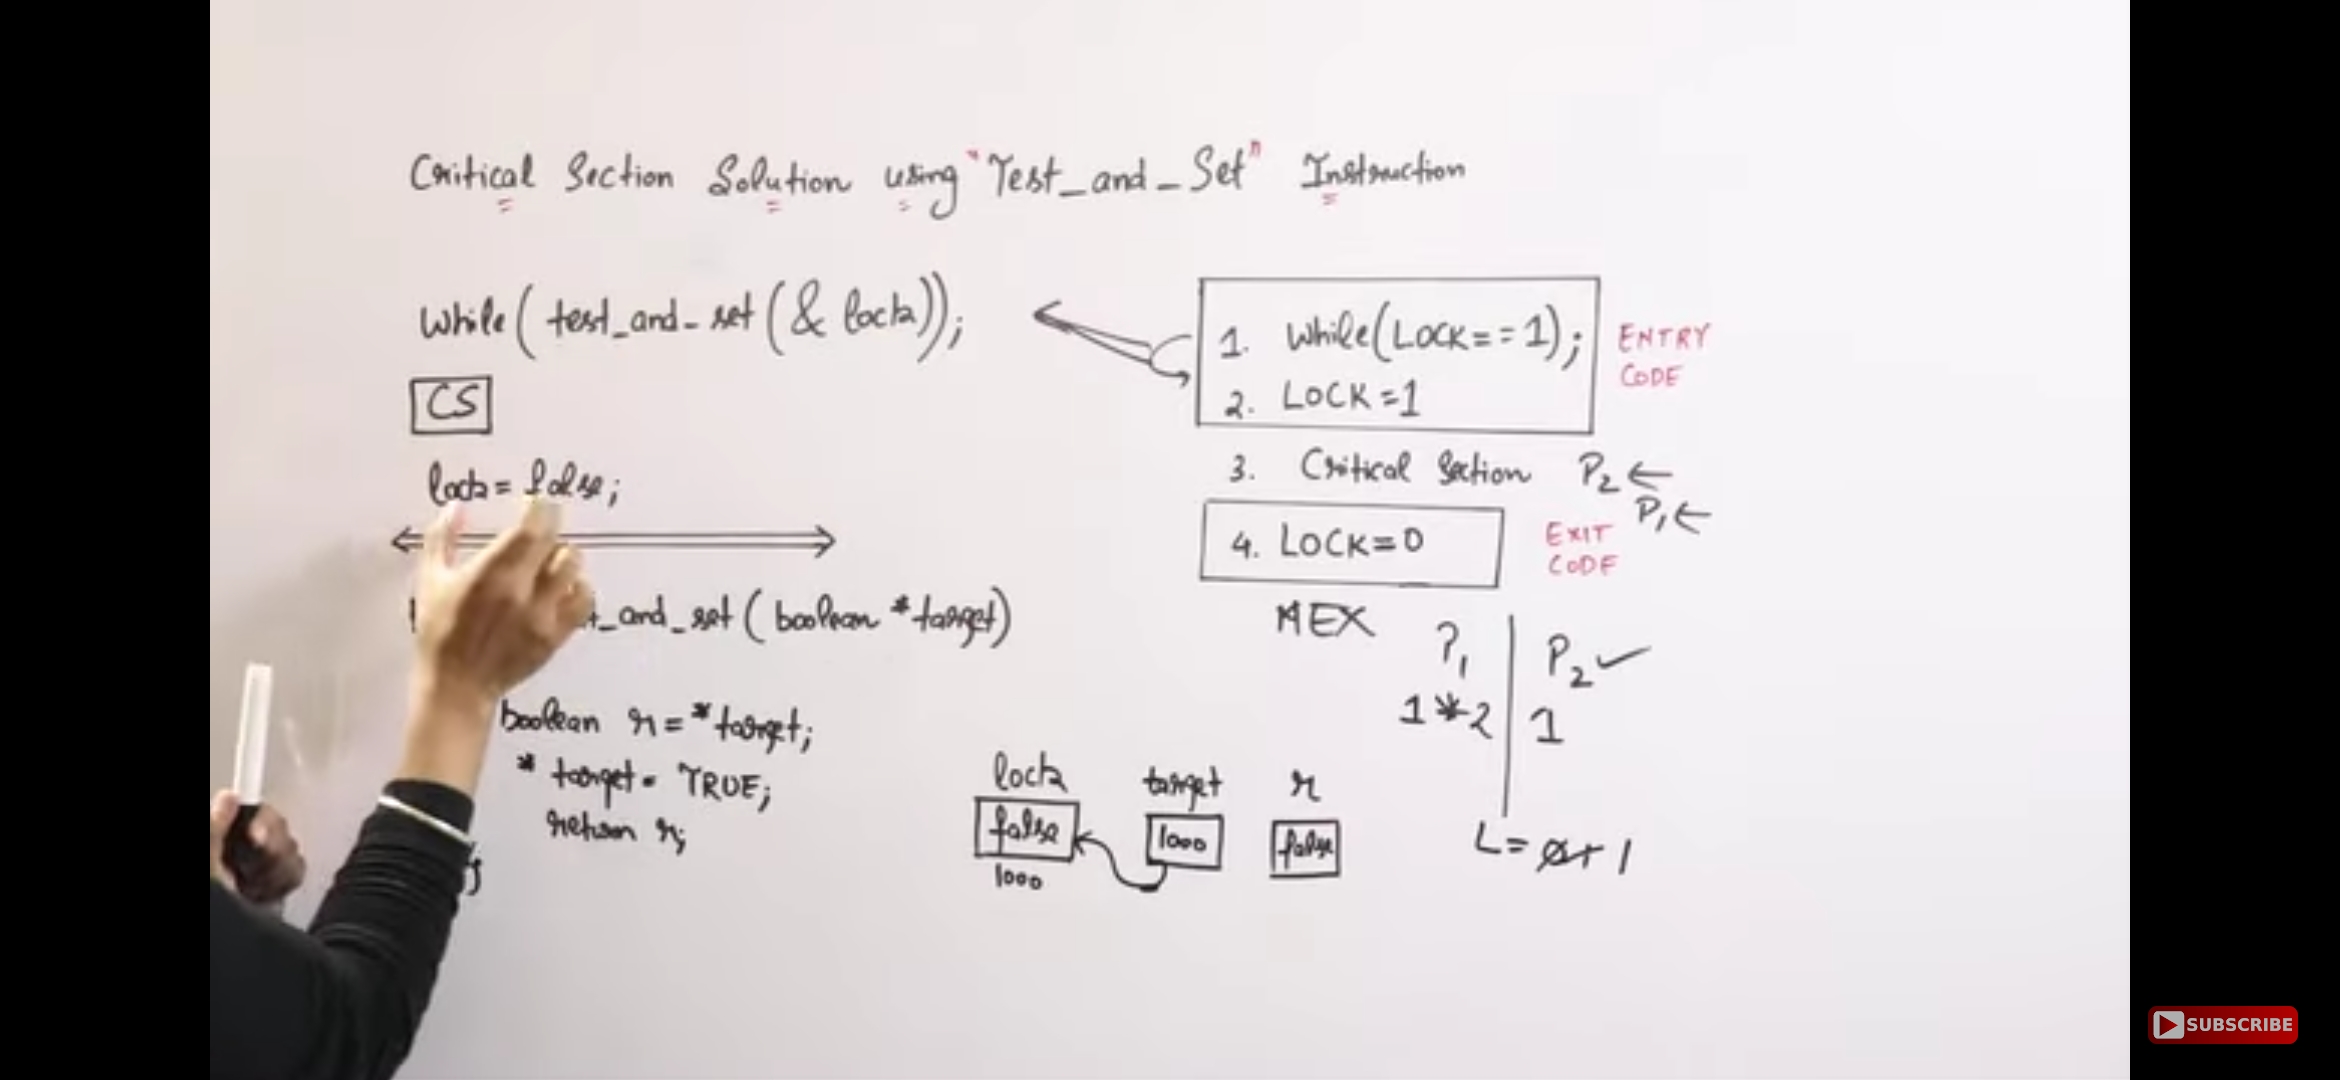 Critical Section Solution using "Test_and_Set" Instruction
while(test_and_set(&lock));
CS
lock=false;
_and_set(boolean *target)
boolean r=*target;
*target=TRUE;
return r;
}
1. While(LOCK==1);
2. LOCK=1
ENTRY
CODE
3. Critical Section P2←
P1←
4. LOCK=0
EXIT
CODE
MEX
P1 P2✓
1*2 1
lock target r
false 1000 false
1000
L= 1
SUBSCRIBE